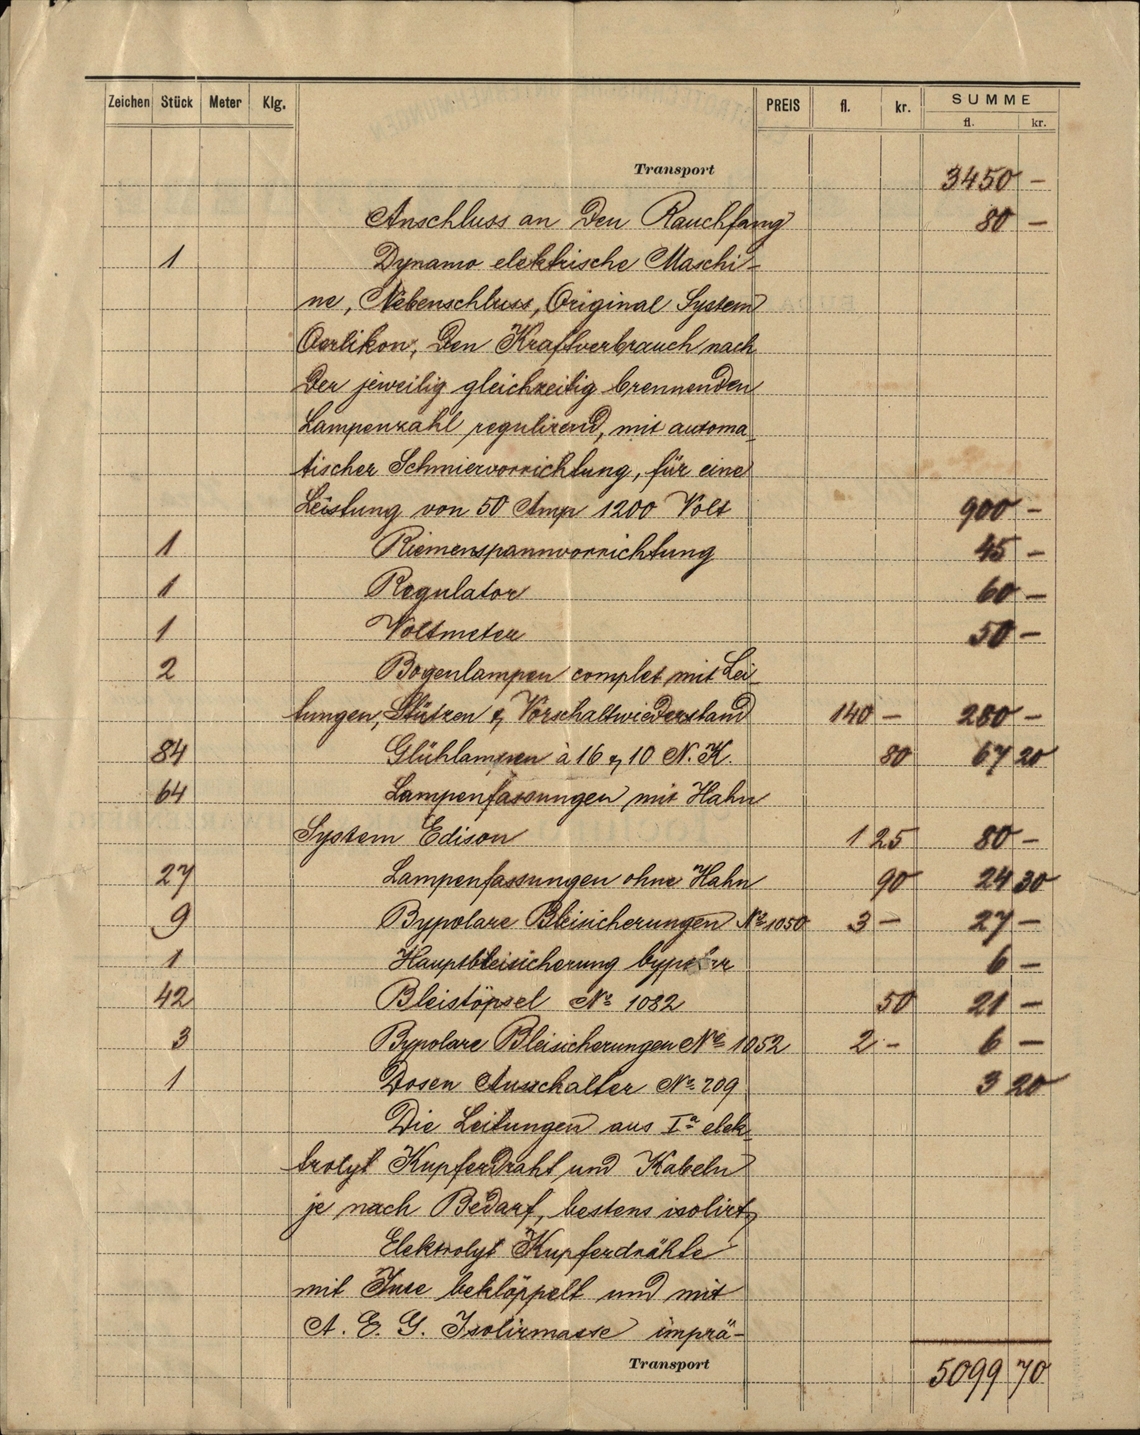 Zeichen Stück Meter Klg. PREIS fl. kr. SUMME fl. kr.
Transport 3450 –
Anschluss an den Rauchfang 80 –
1 Dynamo elektrische Maschi-
ne, Nebenschluss, Original System
Oerlikon, den Kraftverbrauch nach
der jeweilig gleichzeitig brennenden
Lampenzahl regulirend, mit automa-
tischer Schmiervorrichtung, für eine
Leistung von 50 Amp 1200 Volt 900 –
1 Riemenspannvorrichtung 45 –
1 Regulator 60 –
1 Voltmeter 50 –
2 Bogenlampen complet mit Lei-
tungen, Stützen & Vorschaltwiederstand 140 – 280 –
84 Glühlampen à 16 & 10 N. K. 80 67 20
64 Lampenfassungen mit Hahn
System Edison 1 25 80 –
27 Lampenfassungen ohne Hahn 90 24 30
9 Bypolare Bleisicherungen No 1050 3 – 27 –
1 Hauptbleisicherung bypolar 6 –
42 Bleistöpsel No 1082 50 21 –
3 Bypolare Bleisicherungen No 1052 2 – 6 –
1 Dosen Ausschalter No 209 3 20
Die Leitungen aus Ia elek-
trolyt Kupferdraht und Kabeln
je nach Bedarf, bestens isolirt,
Elektrolyt Kupferdrähte
mit Jute beklöppelt und mit
A. E. G. Isolirmasse imprä-
Transport 5099 70